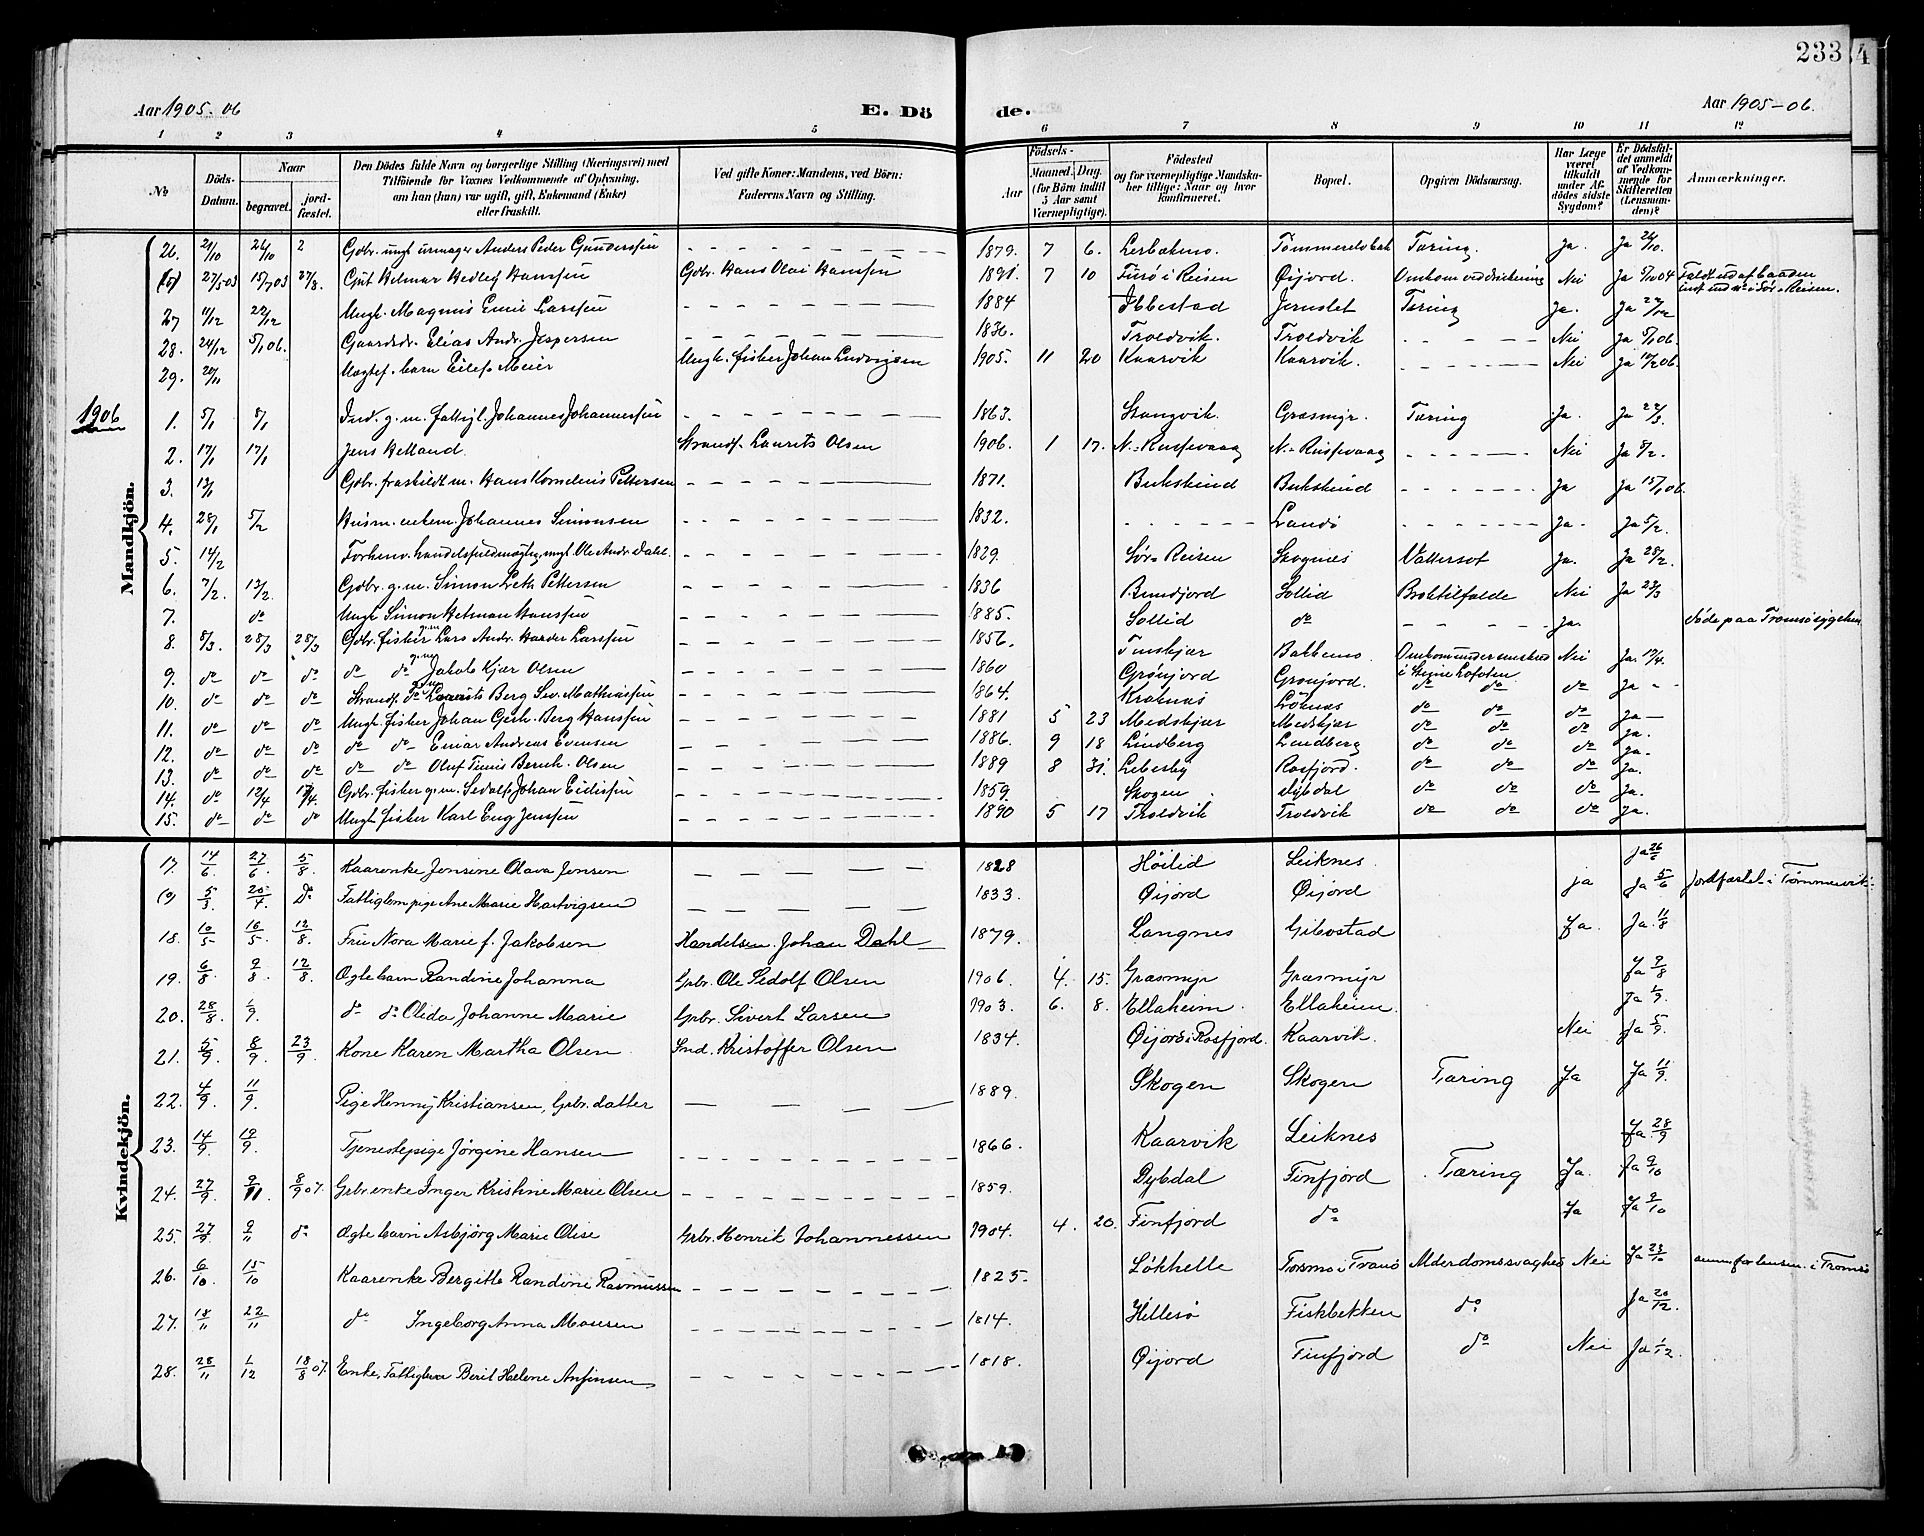 233
4
Aar 1905-06
E. Dö
de.
Aar 1905-06.
1 2 3 4 5 6 7 8 9 10 11 12
No
Döds-Datum.
Naar
begravet.
jord-fæstet.
Den Dödes fulde Navn og borgerlige Stilling (Næringsvei) med
Tilföiende for Voxnes Vedkommende af Oplysning,
om han (hun) var ugift, gift, Enkemand (Enke)
eller fraskilt.
Ved gifte Koner: Mandens, ved Börn:
Faderens Navn og Stilling.
Födsels-
Aar
Maaned. Dag.
(for Börn indtil
5 Aar samt
Værnepligtige).
Födested
og for værnepligtige Mandska-
ber tillige: Naar og hvor
konfirmeret.
Bopæl.
Opgiven Dödsaarsag.
Har Læge
været
tilkaldt
under Af-
dödes sidste
Sygdom?
Er Dödsfal-
det anmeldt
af Vedkom-
mende for
Skifteretten
(Lensman-
den)?
Anmærkninger.
Mandkjön.
26. 21/10 26/10 2 Gdbr. ungk. urmager Anders Peder Gunderssen 1879. 7 6. Lerbakmo. Tømmerelvbak Tæring. Ja. Ja 24/10.
27/5 03 15/7 03 27/8. Gut Helmar Hedley Hanssen Gdbr. Hans Olai Hanssen 1891. 7 10 i Reisen Øijord. Omkom ved drukning Nei Ja 5/1 04 Faldt ud af baaden
27 11/12 22/12 Ungk. Magnus Emil Larssen 1884 Ibbestad Jernslet Tæring Ja. Ja 27/12
28. 24/12 5/1 06. Gaardbr. Elias Andr. Jespersen 1836. Troldvik. Troldvik Nei Ja 5/1 06.
29. 20/11 Uægtef. barn Eilef Meier Ungk. fisker Johan Ludvigsen 1905. 11 20 Kaarvik Kaarvik. Nei Ja 10/2 06.
1906
1. 5/1 8/1 Ind. g. m. fattigl. Johannes Johannessen 1863. Stangvik. Græsmyr. Tæring Ja. Ja 22/3.
2. 17/1 17/1 Jens Helland Strands. Laurits Olsen 1906. 1 17. N.-Russevaag N.-Russevaag Nei Ja 8/2.
3. 13/1 Gdbr. fraskildt m. Hans Kornelius Pettersen 1871. Bukskind Bukskind Ja Ja 15/1 06.
4. 28/1 5/2 Husm. enkem. Johannes Simonsen 1832. Landø Ja. Ja 5/2.
5. 14/2 Forhenv. handelsfuldmægtig, ungk. Ole Andr. Dahl. 1829. Sør-Reisen Skognes Vattersot Ja. Ja 28/2.
6. 7/2. 12/2. Gdbr. g. m. Simon Leth Pettersen 1836 Bundjord Sollid Broktilfælde Nei Ja 23/3
7. do Ungk Simon Helman Hanssen 1885. Sollid do Ja. Døde paa Tromsø sygehus
8. 8/3. 28/3 28/3 Gdbr. fisker g.m. Lars Andr. Harder Larssen 1856. Finskjær Bakkemo Omkom under uveiret Nei Ja. 17/4.
9. do do do do do g.m. Jakob Kjær Olsen 1860 Grønjord Gronjord. i Lofoten
10. do do do Strands. do Laurits Berg Sev. Mathiassen 1864. Kraknæs Løknæs do do do Ja -
11. do do do Ungk. fisker Johan Gerh. Berg Hanssen 1881 5 23 Medskjær Medskjær do do do Ja -
12. do do do do do Einar Andreas Evensen 1886. 9 18 Lindberg Lindberg do do do Ja.
13. do do do do do Oluf Tinus Bernh. Olsen 1889 8 31. Lebesby Rosfjord. do do do Ja.
14. do 12/4 17/4. Gdbr. fisker g. m. Sedolf Johan Eidissen 1859. Skogen Dybdal do do do Ja.
15. do do do Ungk fisker Karl Eug Jenssen 1890 5 17 Troldvik Troldvik do do do Ja.
Kvindekjön.
17. 14/6. 27/6. 5/8. Kaarenke Jensine Olava Jensen 1828 Høilid Leiknes. Ja 26/6
5/3. 20/4. Do Fattiglem pige Ane Marie Hartvigsen 1833. Øijord Øijord ja Ja 5/6 jordfæstet i Tømmervik.
18. 10/5 16/5. 12/8. Frue Nora Marie f. Jakobsen Handelsm. Johan Dahl 1879. Langnes Gibostad Ja. Ja. 11/8
19. 6/8. 9/8. 12/8. Ægte barn Randine Johanna Grbr. Ole Sedolf Olsen 1906. 4. 15. Græsmyr Græsmyr Ja 9/8
20. 28/8. 1/9. do do Olida Johanne Marie Grbr. Sivert Larsen 1903. 6. 8. Ellaheim. Ellaheim. Ja 1/9.
21. 5/9. 8/9. 23/9. Kone Karen Martha Olsen Ind. Kristoffer Olsen 1834. Øijord i Rosfjord. Kaarvik. Nei Ja 5/9.
22. 4/9. 11/9. Pige Henny Kristiansen, Grbr. datter 1889. Skogen Skogen Tæring Ja Ja 11/9.
23. 14/9. 19/9. Tjenestepige Jørgine Hansen 1866. Kaarvik Leiknes Ja 28/9
24. 27/9. 9/11. 8/9 07. Grbr. enke Inger Kristine Marie Olsen 1859. Dybdal Finfjord Tæring Ja. Ja 9/10
25. 27/9. 9/11 do Ægte barn Asbjørg Marie Olise Grbr. Henrik Johannessen 1904. 4. 20. Finfjord do Ja Ja 9/10
26. 6/10. 15/10 Kaarenke Bergitte Randine Rasmussen 1825. Løkhelle Torsmo i Tranø Alderdomssvaghed Nei Ja 23/10 i Tromsø
27. 18/11 22/11 do Ingeborg Anna Mosesen 1814. Hillesø Fiskbekken do Ja 20/12.
28. 28/11 1/12 18/8 07. Enke, Fattiglem Berit Helene Anfinsen 1818. Øijord Finfjord do Nei Ja 1/12.